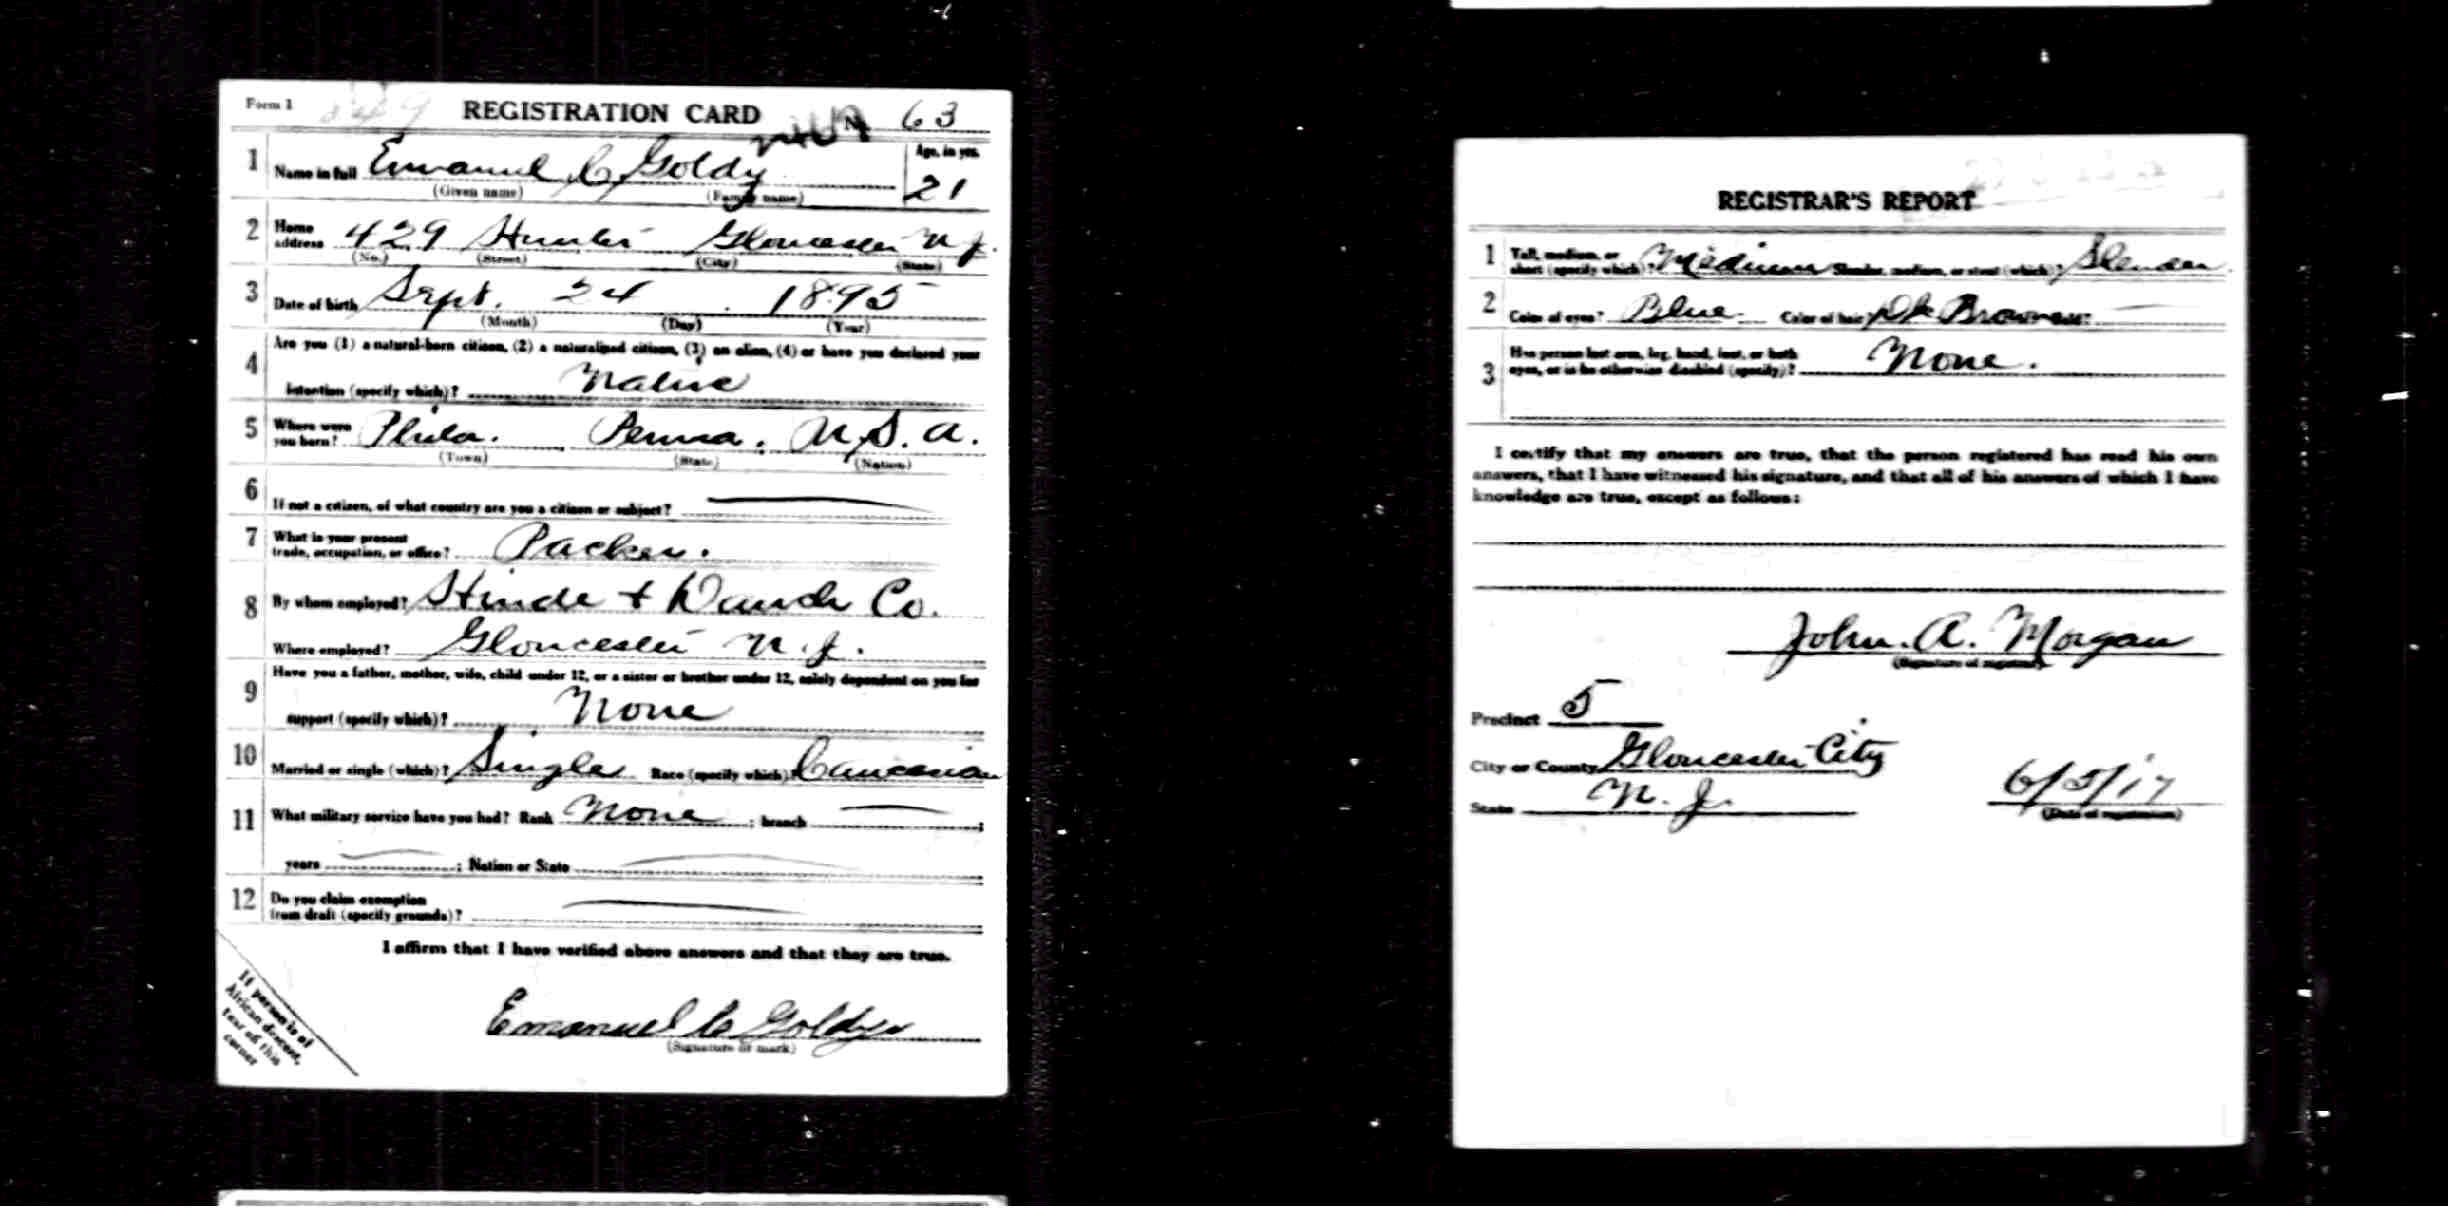 Form 1 REGISTRATION CARD No. 63
1 Name in full Emanuel C Goldy Age, in yrs. 21
(Given name) (Family name)
2 Home address 429 Hunter Gloucester N J.
(No.) (Street) (City) (State)
3 Date of birth Sept. 24 1895
(Month) (Day) (Year)
4 Are you (1) a natural-born citizen, (2) a naturalized citizen, (3) an alien, (4) or have you declared your
intention (specify which)? Native
5 Where were you born? Phila. Penna. U.S.A.
(Town) (State) (Nation)
6 If not a citizen, of what country are you a citizen or subject?
7 What is your present trade, occupation, or office? Packer.
8 By whom employed? Hinde + Dauch Co.
Where employed? Gloucester N.J.
9 Have you a father, mother, wife, child under 12, or a sister or brother under 12, solely dependent on you for
support (specify which)? None
10 Married or single (which)? Single Race (specify which)? Caucasian
11 What military service have you had? Rank None ; branch ;
years ; Nation or State
12 Do you claim exemption from draft (specify grounds)?
I affirm that I have verified above answers and that they are true.
Emanuel C Goldy
(Signature or mark)
If person is of
African descent,
tear off this
corner
REGISTRAR'S REPORT
1 Tall, medium, or short (specify which)? Medium Slender, medium, or stout (which)? Slender
2 Color of eyes? Blue Color of hair? Dk Brown
3 Has person lost arm, leg, hand, foot, or both eyes, or is he otherwise disabled (specify)? None.
I certify that my answers are true, that the person registered has read his own
answers, that I have witnessed his signature, and that all of his answers of which I have
knowledge are true, except as follows:
John. A. Morgan
(Signature of registrar)
Precinct 5
City or County Gloucester City
State N. J.
6/5/17
(Date of registration)